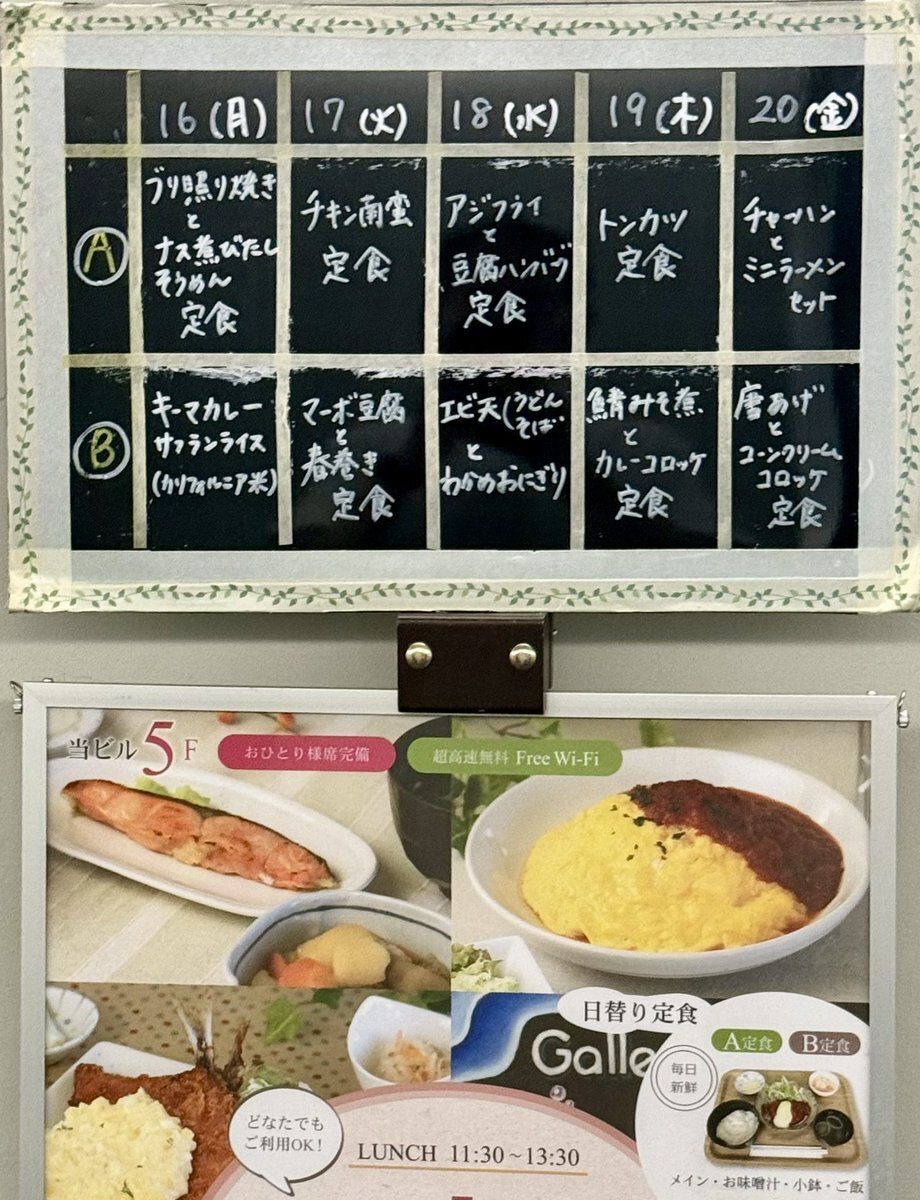 16(月)
17(火)
18(水)
19(木)
20(金)
A
ブリ照り焼き
と
ナス煮びたし
そうめん
定食
チキン南蛮
定食
アジフライ
と
豆腐ハンバーグ
定食
トンカツ
定食
チャーハン
と
ミニラーメン
セット
B
キーマカレー
サフランライス
(カリフォルニア米)
マーボ豆腐
と
春巻き
定食
エビ天(うどん
そば
と
わかめおにぎり
鯖みそ煮
と
カレーコロッケ
定食
唐あげ
と
コーンクリーム
コロッケ
定食
当ビル5F
おひとり様席完備
超高速無料 Free Wi-Fi
日替り定食
A定食
B定食
毎日
新鮮
Galle
どなたでも
ご利用OK!
LUNCH 11:30～13:30
メイン・お味噌汁・小鉢・ご飯